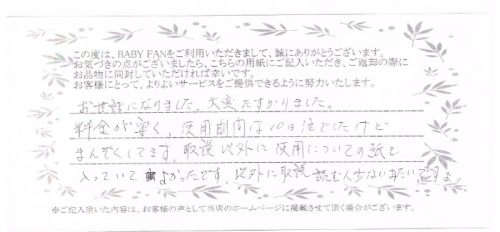 この度は、BABY FANをご利用いただきまして、誠にありがとうございます。
お気づきの点がございましたら、こちらの用紙にご記入いただき、ご返却の際に
お品物に同封していただければ幸いです。
お客様にとって、よりよいサービスをご提供できるように努力いたします。
お世話になりました。大変たすかりました。
料金が安く、使用期間は10日位でしたけど
まんぞくしてます。取説以外に使用についての紙も
入っていて よかったです。以外に取説読む人少ないみたいですよ
※ご記入頂いた内容は、お客様の声として当店のホームページに掲載させて頂く場合がございます。